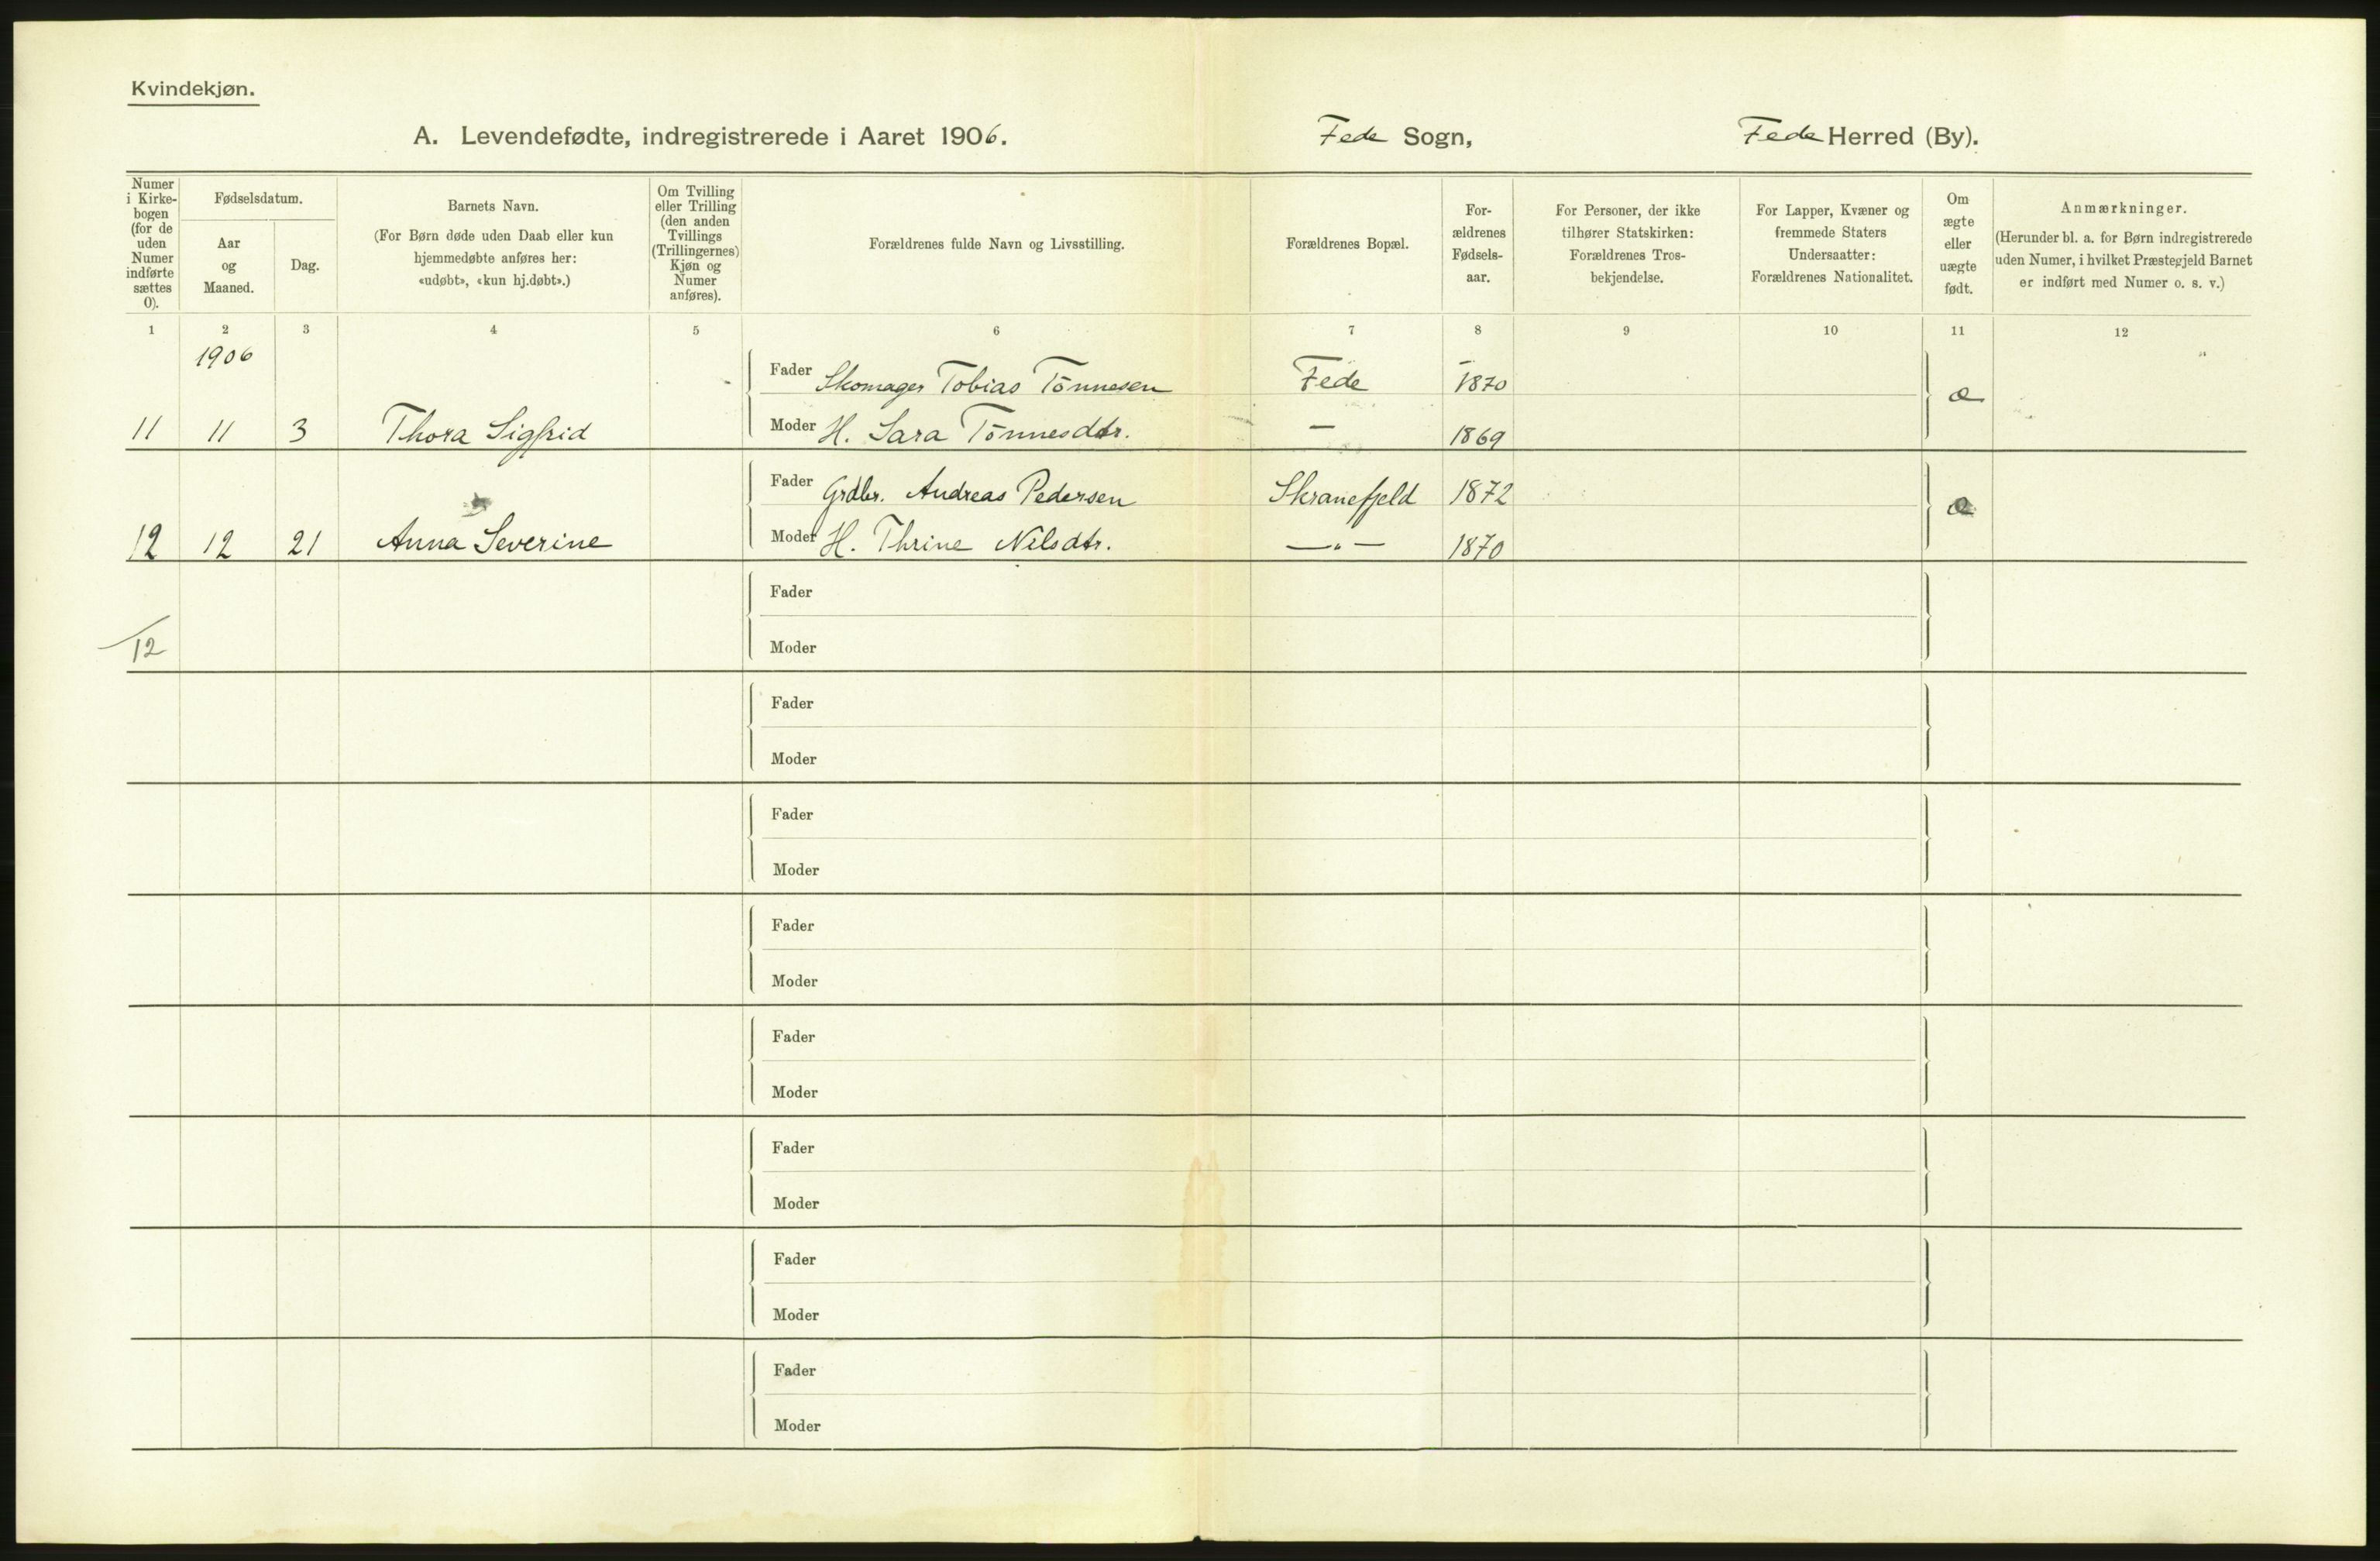 Kvindekjøn.
A. Levendefødte, indregistrerede i Aaret 1906. Fede Sogn, Fede Herred (By).
Numer i Kirke-bogen (for de uden Numer indførte sættes 0).
Fødselsdatum.
Aar og Maaned.
Dag.
Barnets Navn.
(For Børn døde uden Daab eller kun hjemmedøbte anføres her: «udøbt», «kun hj.døbt».)
Om Tvilling eller Trilling (den anden Tvillings (Trillingernes) Kjøn og Numer anføres).
Forældrenes fulde Navn og Livsstilling.
Forældrenes Bopæl.
For-ældrenes Fødsels-aar.
For Personer, der ikke tilhører Statskirken: Forældrenes Tros-bekjendelse.
For Lapper, Kvæner og fremmede Staters Undersaatter: Forældrenes Nationalitet.
Om ægte eller uægte født.
Anmærkninger.
(Herunder bl. a. for Børn indregistrerede uden Numer, i hvilket Præstegjeld Barnet er indført med Numer o. s. v.)
1 2 3 4 5 6 7 8 9 10 11 12
1906
Fader Skomager Tobias Tönnesen Fede 1870
11 11 3 Thora Sigfrid Moder H. Sara Tönnesdtr. — 1869
Fader Grdbr. Andreas Pedersen Skranefjeld 1872
12 12 21 Anna Severine Moder H. Thrine Nilsdtr. —"— 1870
Fader
12 Moder
Fader
Moder
Fader
Moder
Fader
Moder
Fader
Moder
Fader
Moder
Fader
Moder
Fader
Moder